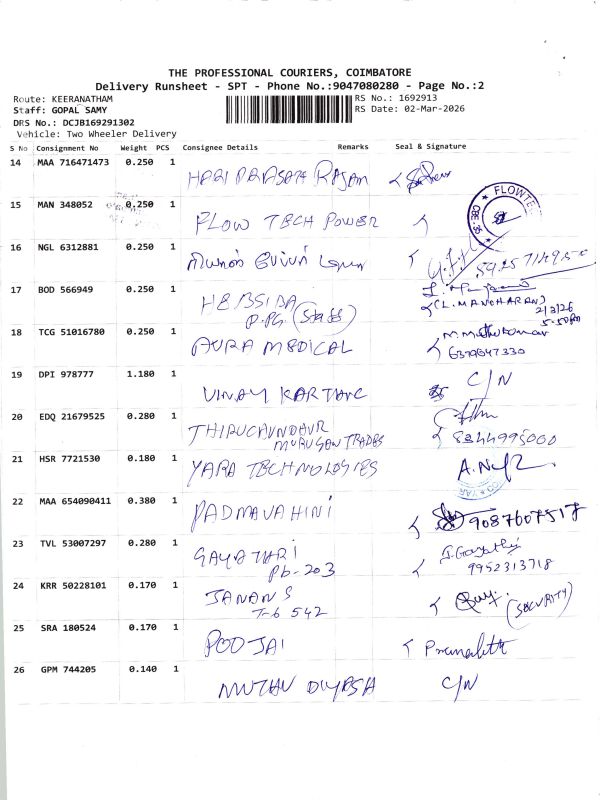 THE PROFESSIONAL COURIERS, COIMBATORE
Delivery Runsheet - SPT - Phone No.:9047080280 - Page No.:2
Route: KEERANATHAM
RS No.: 1692913
Staff: GOPAL SAMY
RS Date: 02-Mar-2026
DRS No.: DCJB169291302
Vehicle: Two Wheeler Delivery
S No Consignment No Weight PCS Consignee Details Remarks Seal & Signature
14 MAA 716471473 0.250 1
15 MAN 348052 0.250 1 FLOW TECH POWER
FLOWTE
16 NGL 6312881 0.250 1
17 BOD 566949 0.250 1 HEBSIBA
P.PG (Staff)
(L. MANOHARAN)
2/3/26
5-50pm
18 TCG 51016780 0.250 1 AURA MEDICAL
6379647330
19 DPI 978777 1.180 1 VINAY KARTHIC C/N
20 EDQ 21679525 0.280 1
MURUGAN TRADES 8344995000
21 HSR 7721530 0.180 1 YARA TECHNOLOGIES
22 MAA 654090411 0.380 1 PADMAVAHINI 9087607517
23 TVL 53007297 0.280 1 GAYATHRI
Pb-203 9952313718
24 KRR 50228101 0.170 1 JANAN S
T-6 542 (SECURITY)
25 SRA 180524 0.170 1 POOJAI
26 GPM 744205 0.140 1 C/N